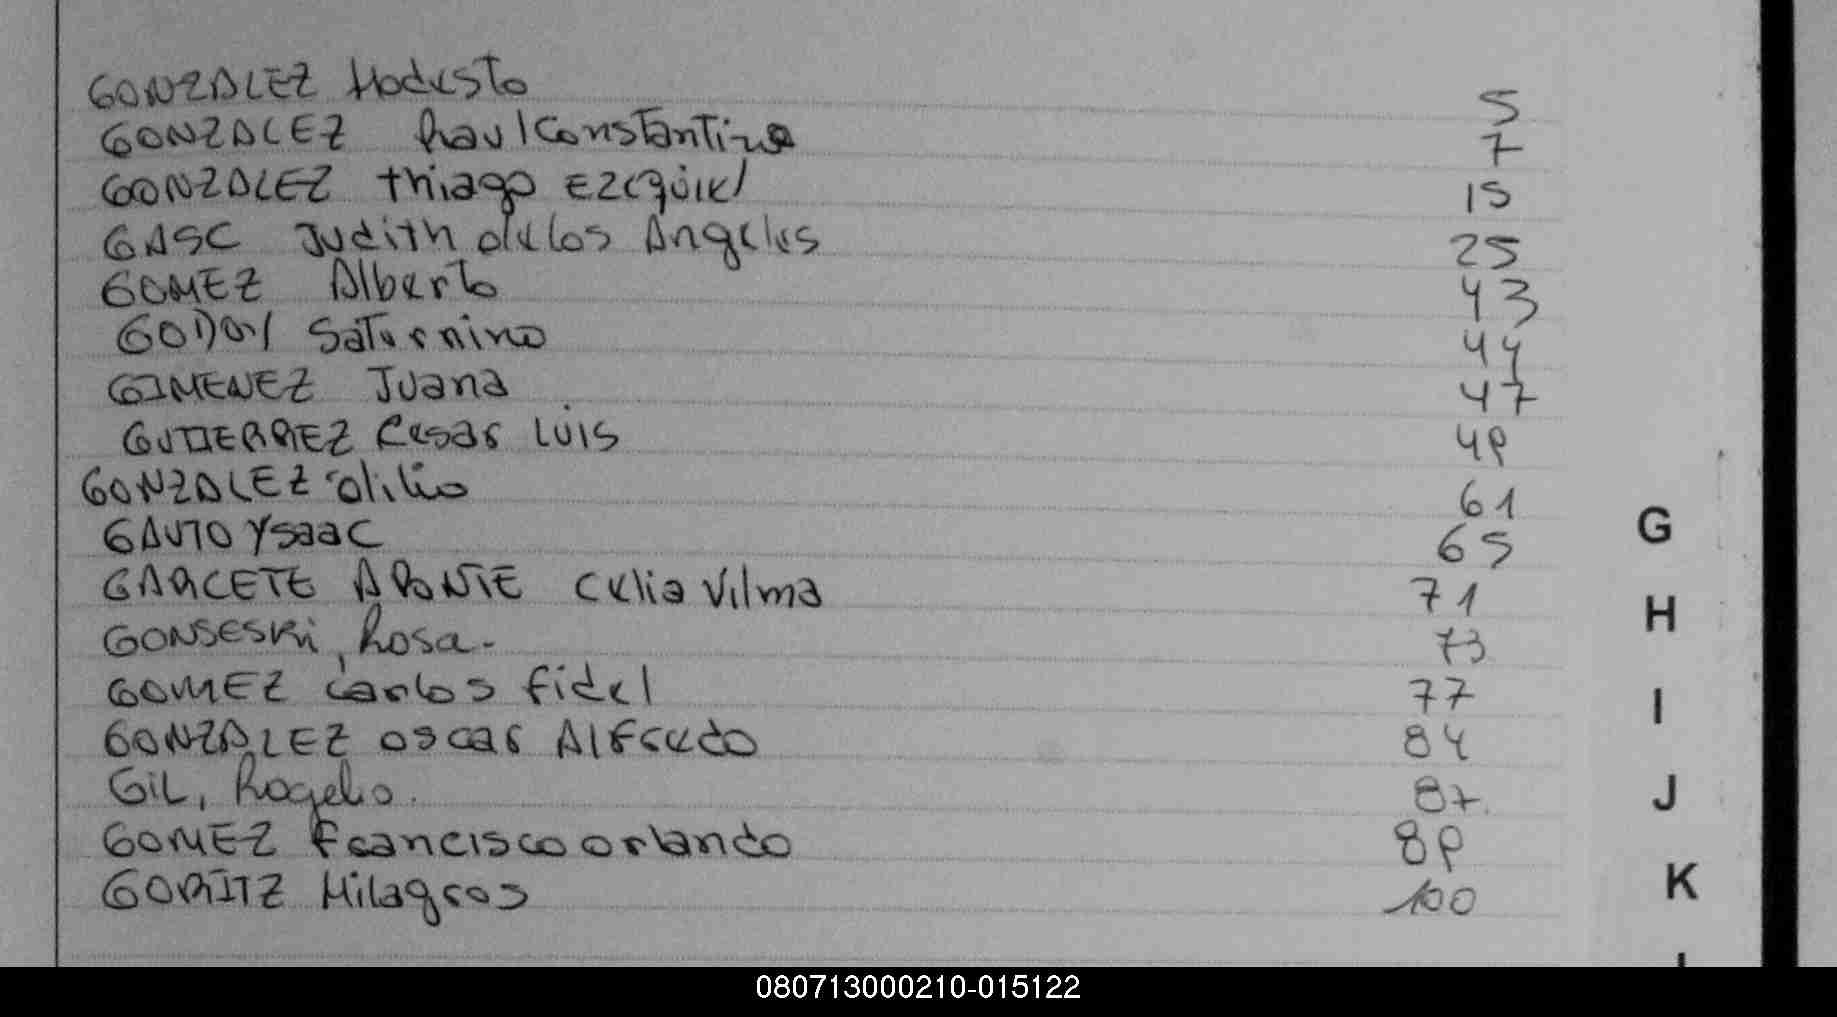 GONZALEZ Modesto 5
GONZALEZ Raul Constantino 7
GONZALEZ thiago Ezequiel 15
GASC Judith de los Angeles 25
GOMEZ Alberto 43
GODOY Saturnino 44
GIMENEZ Juana 47
GUTIERREZ Cesar LUIS 49
GONZALEZ 61
GAUTO Ysaac 65
GARCETE APONTE Celia Vilma 71
GONSESKi, Rosa. 73
GOMEZ Carlos fidel 77
GONZALEZ OSCAR Alfredo 84
GIL, Rogelio. 87.
GOMEZ francisco orlando 89
GORITZ Milagros 100
G
H
I
J
K
080713000210-015122